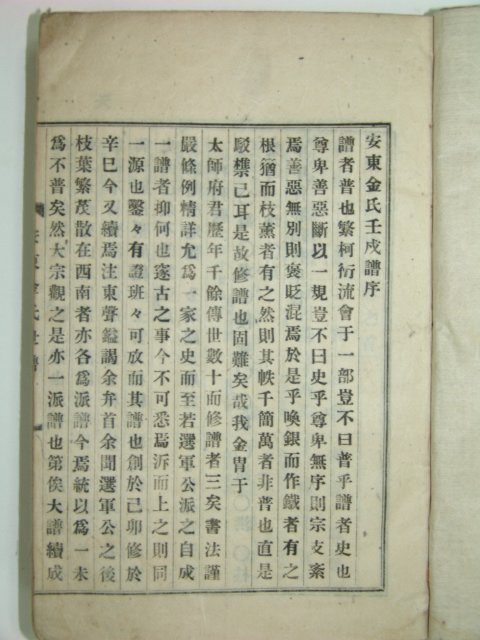 安東金氏壬戌譜序
譜者普也繁柯衍流會于一部豈不曰普乎譜者史也
尊卑善惡斷以一規豈不曰史乎尊卑無序則宗支紊
焉善惡無別則褒貶混焉於是乎喚銀而作鐵者有之
根猶而枝薰者有之然則其帙千簡萬者非普也直是
駁襍已耳是故修譜也固難矣哉我金胄于
太師府君歷年千餘傳世數十而修譜者三矣書法謹
嚴條例精詳允爲一家之史而至若選軍公派之自成
一譜者抑何也邃古之事今不可悉焉泝而上之則同
一源也鑿々有證班々可放而其譜也創於己卯修於
辛巳今又續焉注東聲鎰謁余弁首余聞選軍公之後
枝葉繁茂散在西南者亦各爲派譜今焉統以爲一未
爲不普矣然大宗觀之是亦一派譜也第俟大譜續成
安東金氏世譜